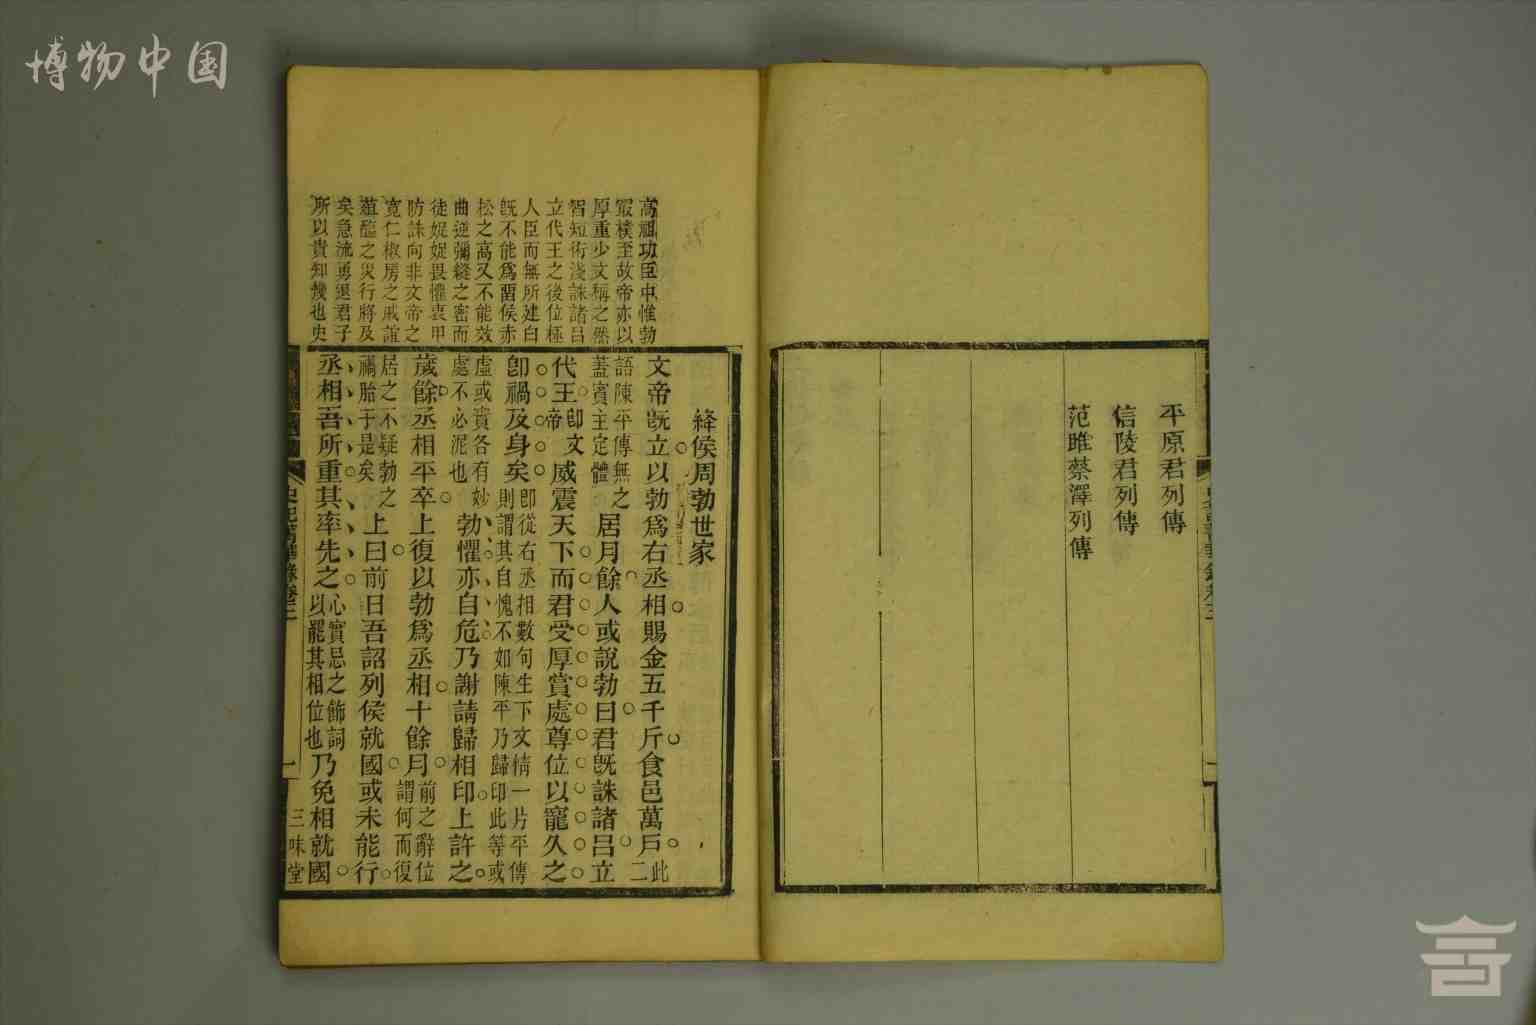 博物中国
平原君列傳
信陵君列傳
范雎蔡澤列傳
高祖功臣中惟勃
冣樸至故帝亦以
厚重少文稱之然
智短術淺誅諸呂
立代王之後位極
人臣而無所建白
旣不能爲留侯赤
松之高又不能效
曲逆彌縫之密而
徒娖娖畏懼衷甲
防誅向非文帝之
寬仁椒房之戚誼
葅醢之災行將及
矣急流勇退君子
所以貴知幾也史
絳侯周勃世家
文帝旣立以勃爲右丞相賜金五千斤食邑萬戶此二
語陳平傳無之蓋賓主定體居月餘人或說勃曰君旣誅諸呂立
代王卽文帝威震天下而君受厚賞處尊位以寵久之
卽禍及身矣卽從右丞相數句生下文情一片平傳則謂其自愧不如陳平乃歸印此等或
虛或實各有妙處不必泥也勃懼亦自危乃謝請歸相印上許之
歲餘丞相平卒上復以勃爲丞相十餘月前之辭位謂何而復
居之不疑勃之禍胎于是矣上曰前日吾詔列侯就國或未能行
丞相吾所重其率先之心實忌之飾詞以罷其相位也乃免相就國
史記菁華錄卷三
一
三味堂